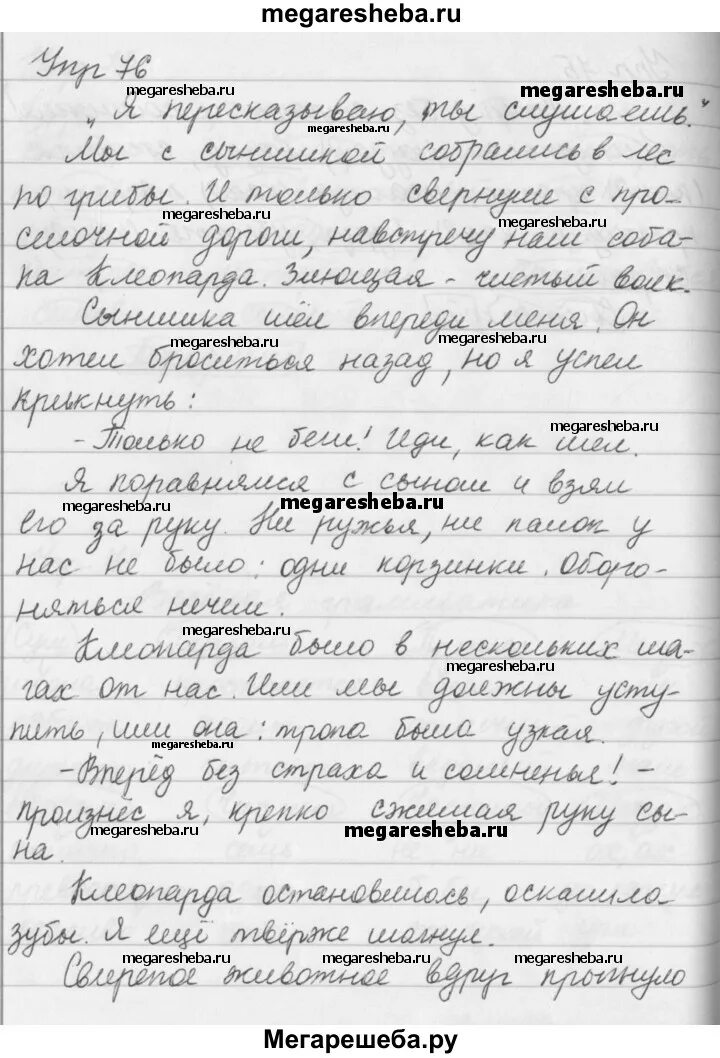 megaresheba.ru
Упр 76
megaresheba.ru
megaresheba.ru
"Я пересказываю, ты слушаешь."
megaresheba.ru
Мы с сынишкой собрались в лес
по грибы. И только свернули с про-
megaresheba.ru
megaresheba.ru
сёлочной дороги, навстречу нам соба-
ка Клеопарда. Злющая - чистый волк.
Сынишка шёл впереди меня. Он
megaresheba.ru
хотел броситься назад, но я успел
крикнуть:
megaresheba.ru
- Только не беги! Иди, как шёл.
Я поравнялся с сыном и взял
megaresheba.ru
megaresheba.ru
его за руку. Ни ружья, ни палок у
нас не было: одни корзинки. Оборо-
няться нечем.
megaresheba.ru
Клеопарда было в нескольких ша-
megaresheba.ru
гах от нас. Или мы должны усту-
пить, или она: тропа была узкая.
megaresheba.ru
- Вперёд без страха и сомненья! -
произнёс я, крепко сжимая руку сы-
megaresheba.ru
megaresheba.ru
на.
Клеопарда остановилось, оскалила
megaresheba.ru
зубы. Я ещё твёрже шагнул.
megaresheba.ru
megaresheba.ru
megaresheba.ru
Свирепое животное вдруг прыгнуло
Мегарешеба.ру